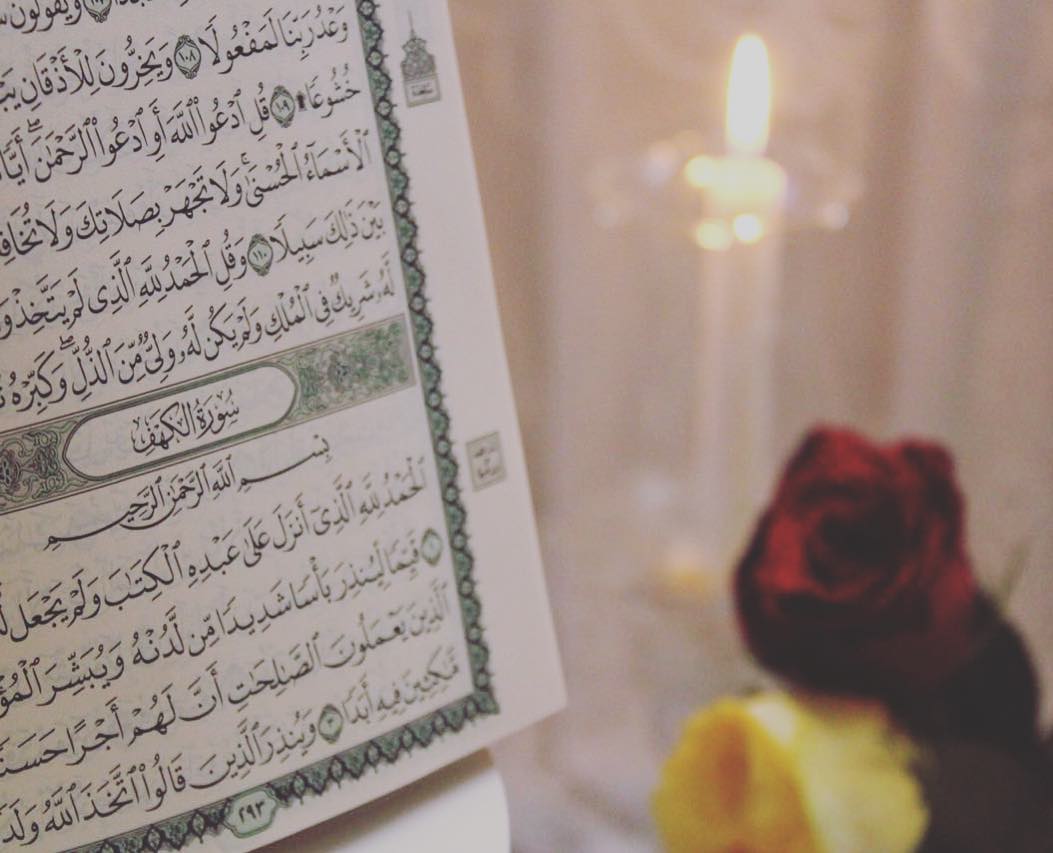 وَيَقُولُونَ
وَعْدُ رَبِّنَا لَمَفْعُولًا ١٠٨ وَيَخِرُّونَ لِلْأَذْقَانِ
خُشُوعًا ۩ ١٠٩ قُلِ ٱدْعُوا۟ ٱللَّهَ أَوِ ٱدْعُوا۟ ٱلرَّحْمَٰنَ ۖ
ٱلْأَسْمَآءُ ٱلْحُسْنَىٰ ۚ وَلَا تَجْهَرْ بِصَلَاتِكَ وَلَا
بَيْنَ ذَٰلِكَ سَبِيلًا ١١٠ وَقُلِ ٱلْحَمْدُ لِلَّهِ ٱلَّذِى لَمْ يَتَّخِذْ
لَّهُۥ شَرِيكٌ فِى ٱلْمُلْكِ وَلَمْ يَكُن لَّهُۥ وَلِىٌّ مِّنَ ٱلذُّلِّ ۖ وَكَبِّرْهُ
سُورَةُ الكَهْفِ
بِسْمِ ٱللَّهِ ٱلرَّحْمَٰنِ ٱلرَّحِيمِ
ٱلْحَمْدُ لِلَّهِ ٱلَّذِىٓ أَنزَلَ عَلَىٰ عَبْدِهِ ٱلْكِتَٰبَ وَلَمْ يَجْعَل
١ قَيِّمًا لِّيُنذِرَ بَأْسًا شَدِيدًا مِّن لَّدُنْهُ وَيُبَشِّرَ
ٱلَّذِينَ يَعْمَلُونَ ٱلصَّٰلِحَٰتِ أَنَّ لَهُمْ أَجْرًا حَسَنًا
مَّٰكِثِينَ فِيهِ أَبَدًا ٣ وَيُنذِرَ ٱلَّذِينَ قَالُوا۟ ٱتَّخَذَ ٱللَّهُ وَلَدًا
٢٩٣